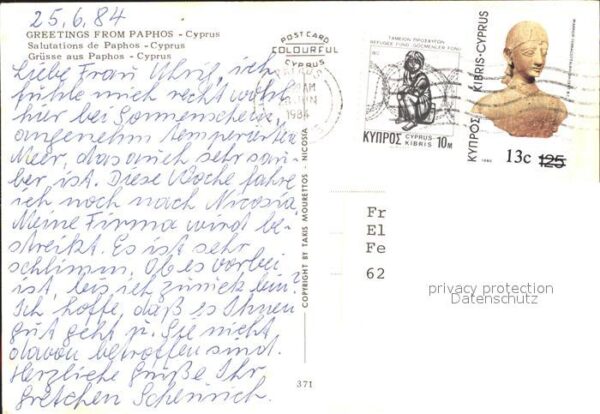 25.6.84
GREETINGS FROM PAPHOS - Cyprus
Salutations de Paphos - Cyprus
Grüsse aus Paphos - Cyprus
Liebe Frau Uhrig, ich
fühle mich recht wohl
hier bei Sonnenschein,
angenehm temperierten
Meer, das auch sehr sau-
ber ist. Diese Woche fahre
ich noch nach Nicosia
Meine Firma wird be-
streikt. Es ist sehr
schlimm. Ob es vorbei
ist, bis ich zurück bin?
Ich hoffe, daß es Ihnen
gut geht u. Sie nicht
davon betroffen sind.
Herzliche Grüße Ihr
Gretchen
POSTCARD
COLOURFUL
CYPRUS
PAFOS
AM
JUN
1984
COPYRIGHT BY TAKIS MOURETTOS - NICOSIA
371
ΤΑΜΕΙΟΝ ΠΡΟΣΦΥΓΩΝ
REFUGEE FUND GÖÇMENLER FONU
ΚΥΠΡΟΣ
CYPRUS
KIBRIS
10M
ΚΥΠΡΟΣ KIBRIS-CYPRUS
13c 125
Fr
El
Fe
62
privacy protection
Datenschutz